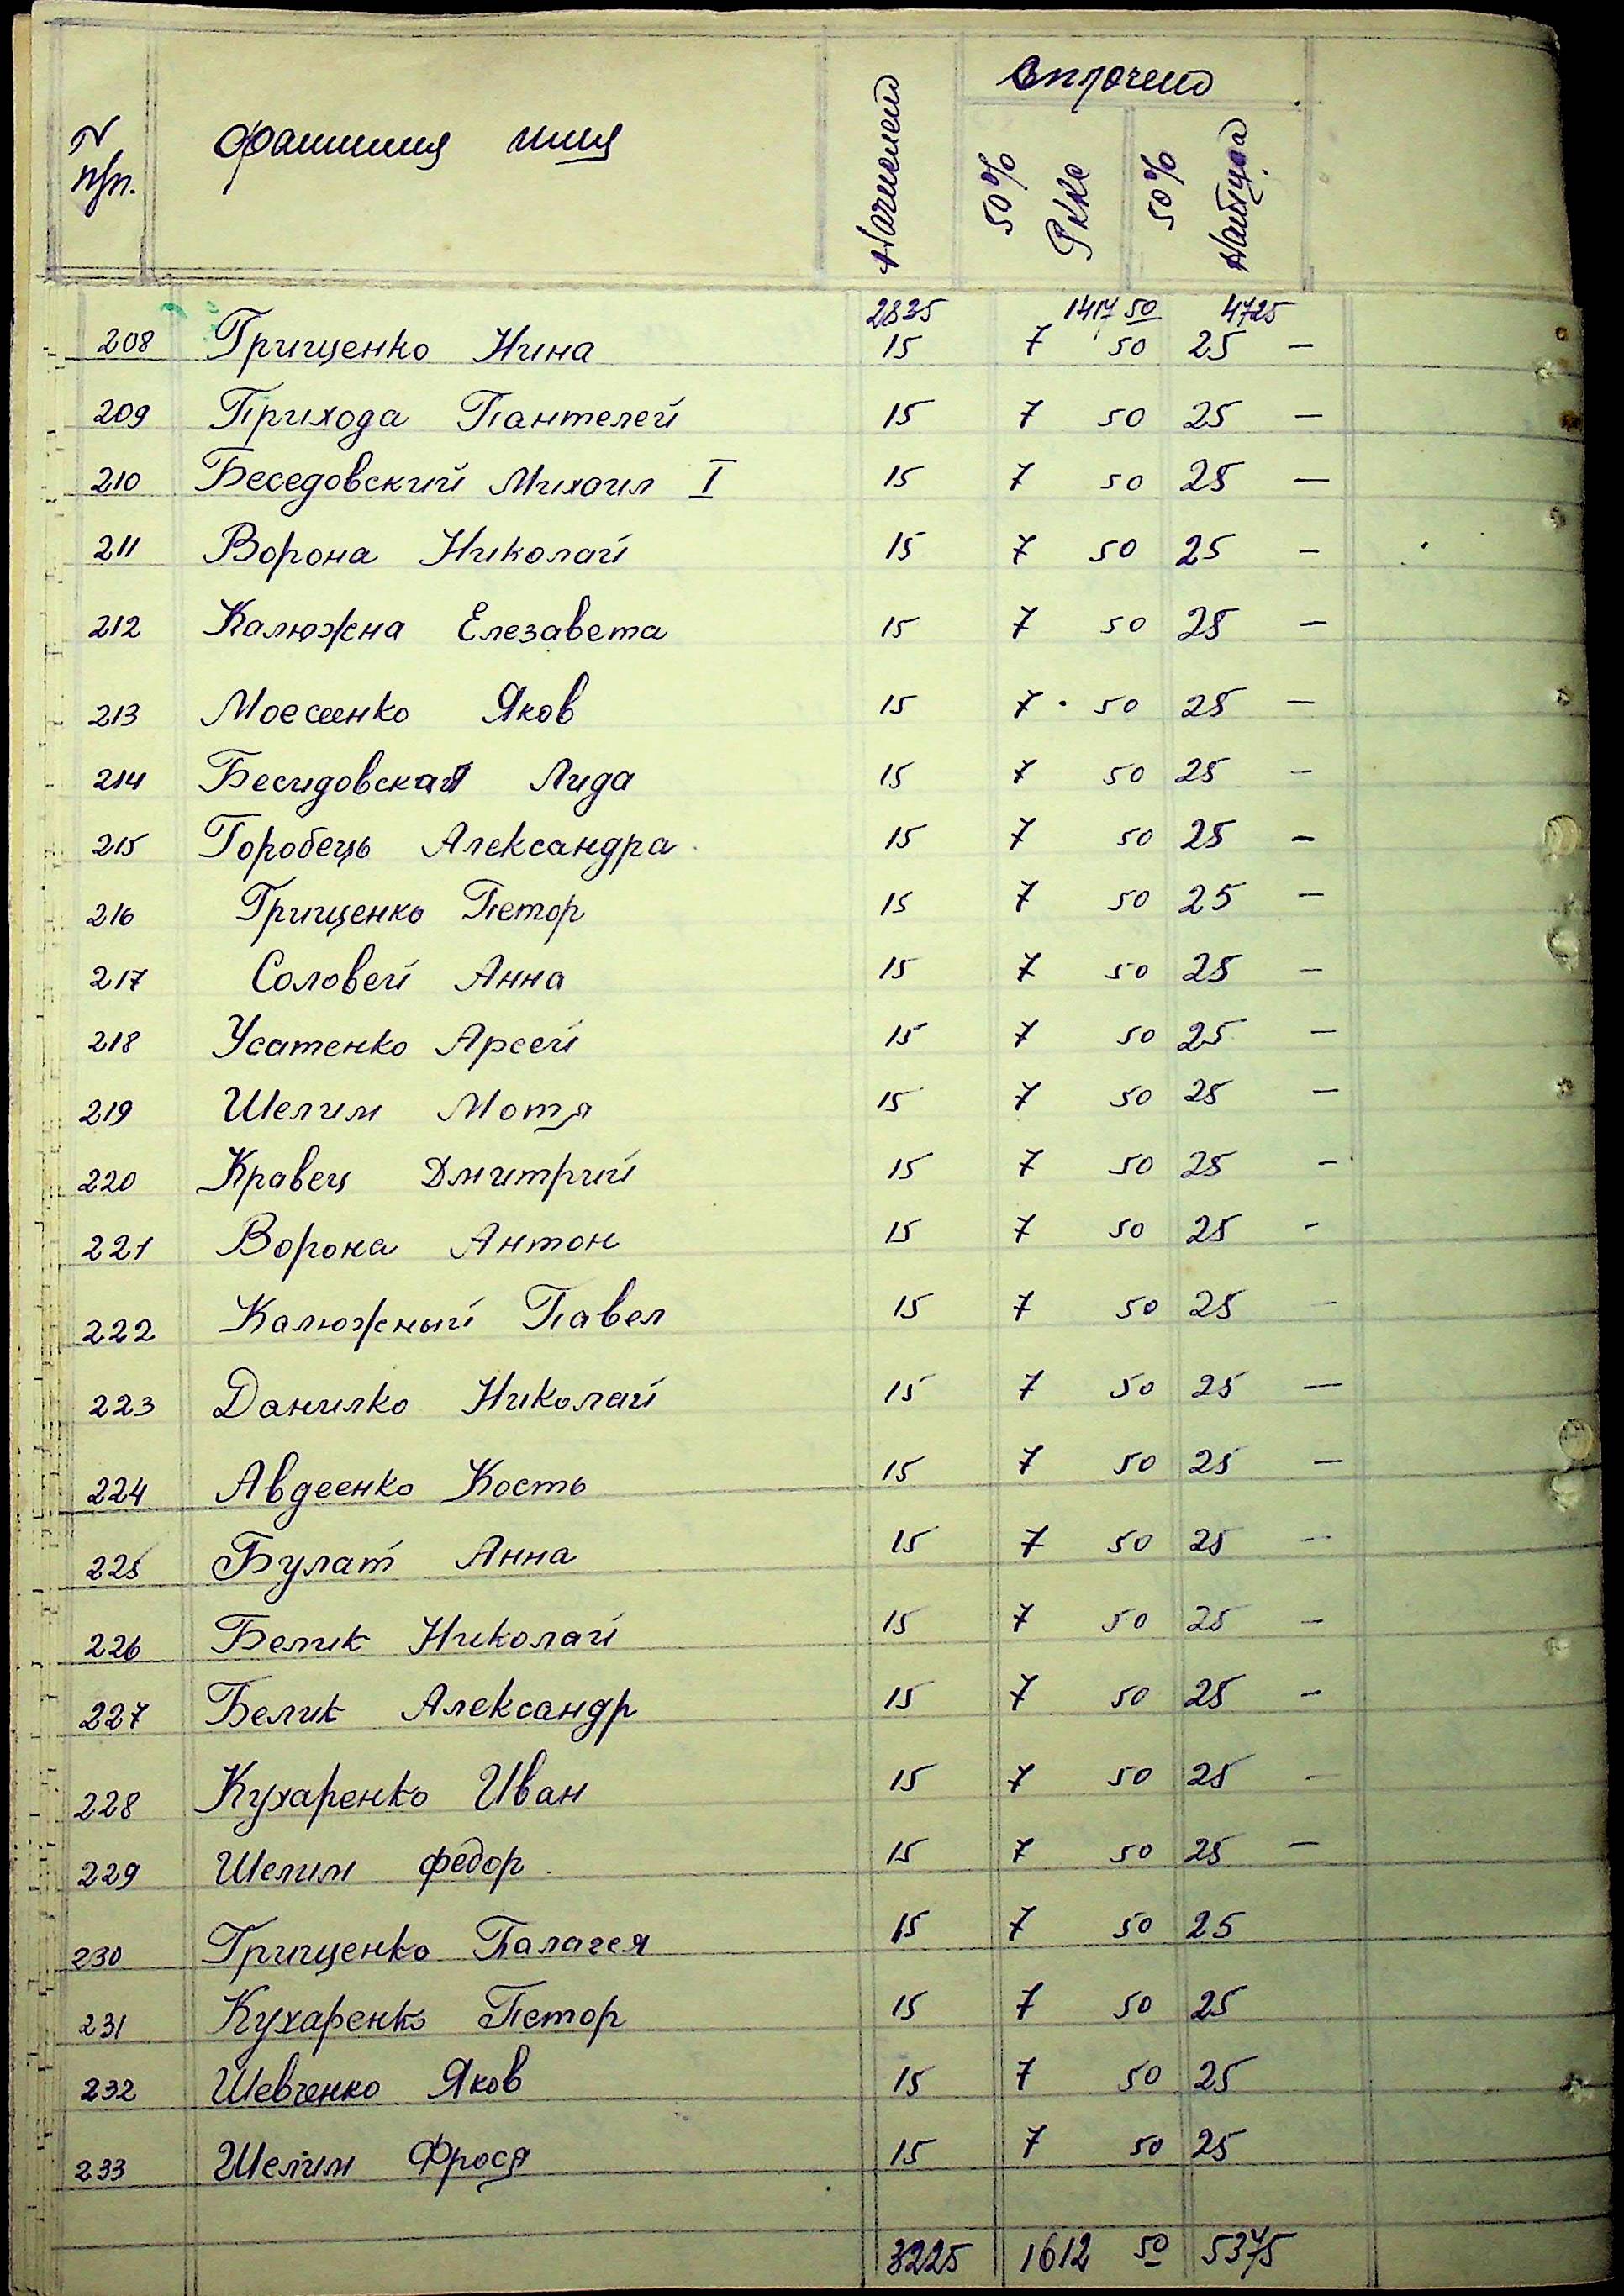 N п/п. фамилия имя Начислено Оплочено
50% РККА 50% Найтца
2835 1417 50 4725
208 Грищенко Нина 15 7 50 25 —
209 Прихода Пантелей 15 7 50 25 —
210 Беседовский Михаил I 15 7 50 25 —
211 Ворона Николай 15 7 50 25 —
212 Калюжна Елезавета 15 7 50 25 —
213 Моесеенко Яков 15 7 50 25 —
214 Бесидовская Лида 15 7 50 25 —
215 Горобець Александра 15 7 50 25 —
216 Грищенко Петор 15 7 50 25 —
217 Соловей Анна 15 7 50 25 —
218 Усатенко Арсей 15 7 50 25 —
219 Шелим Мотя 15 7 50 25 —
220 Кравец Дмитрий 15 7 50 25 —
221 Ворона Антон 15 7 50 25 -
222 Калюжный Павел 15 7 50 25 —
223 Данилко Николай 15 7 50 25 —
224 Авдеенко Кость 15 7 50 25 —
225 Булат Анна 15 7 50 25 —
226 Белик Николай 15 7 50 25 —
227 Белик Александр 15 7 50 25 —
228 Кухаренко Иван 15 7 50 25 —
229 Шелим федор 15 7 50 25 —
230 Грищенко Палагея 15 7 50 25
231 Кухаренко Петор 15 7 50 25
232 Шевченко Яков 15 7 50 25
233 Шелим Фрося 15 7 50 25
3225 1612 50 5375